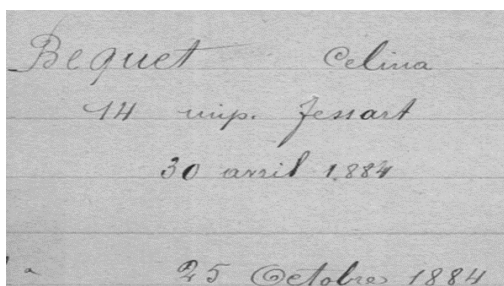 Bequet Celina
14 imp. fessart
30 avril 1884
25 Octobre 1884